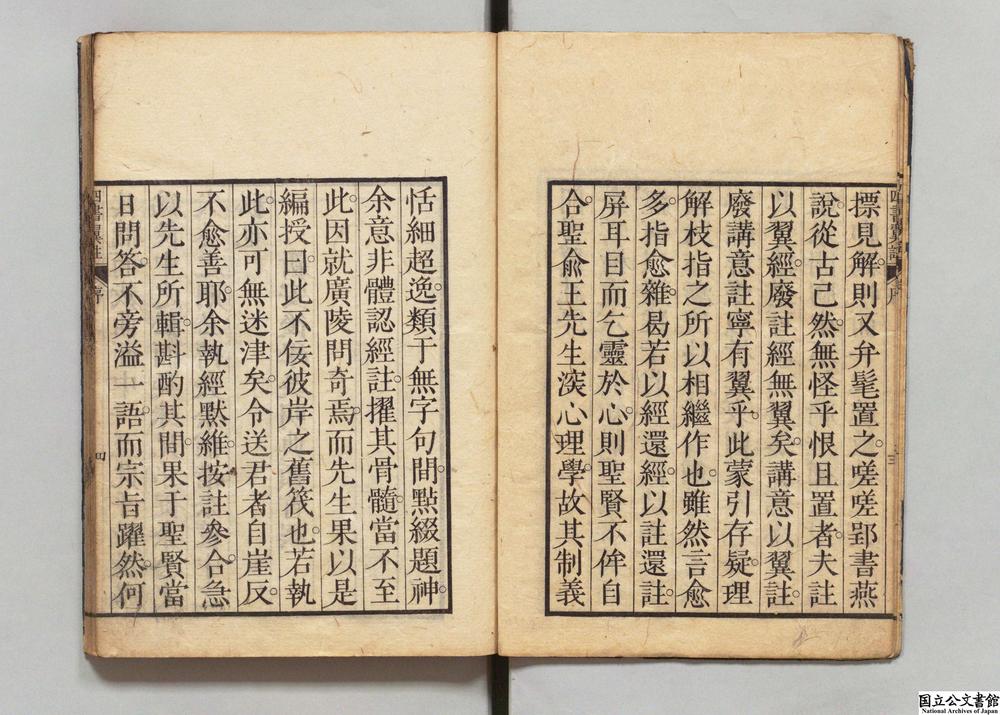 摽見解則又弁髦置之嗟嗟郢書燕
說從古已然無怪乎恨且置者夫註
以翼經廢註經無翼矣講意以翼註
廢講意註寧有翼乎此蒙引存疑理
解枝指之所以相繼作也雖然言愈
多指愈雜曷若以經還經以註還註
屏耳目而乞靈於心則聖賢不侔自
合聖俞王先生湥心理學故其制義
恬細超逸類于無字句間點綴題神
余意非體認經註擢其骨髓當不至
此因就廣陵問奇焉而先生果以是
編授曰此不佞彼岸之舊筏也若執
此亦可無迷津矣令送君者自崖反
不愈善耶余執經默維按註參合急
以先生所輯斟酌其間果于聖賢當
日問答不旁溢一語而宗旨躍然何
四書
序
四
国立公文書館
National Archives of Japan